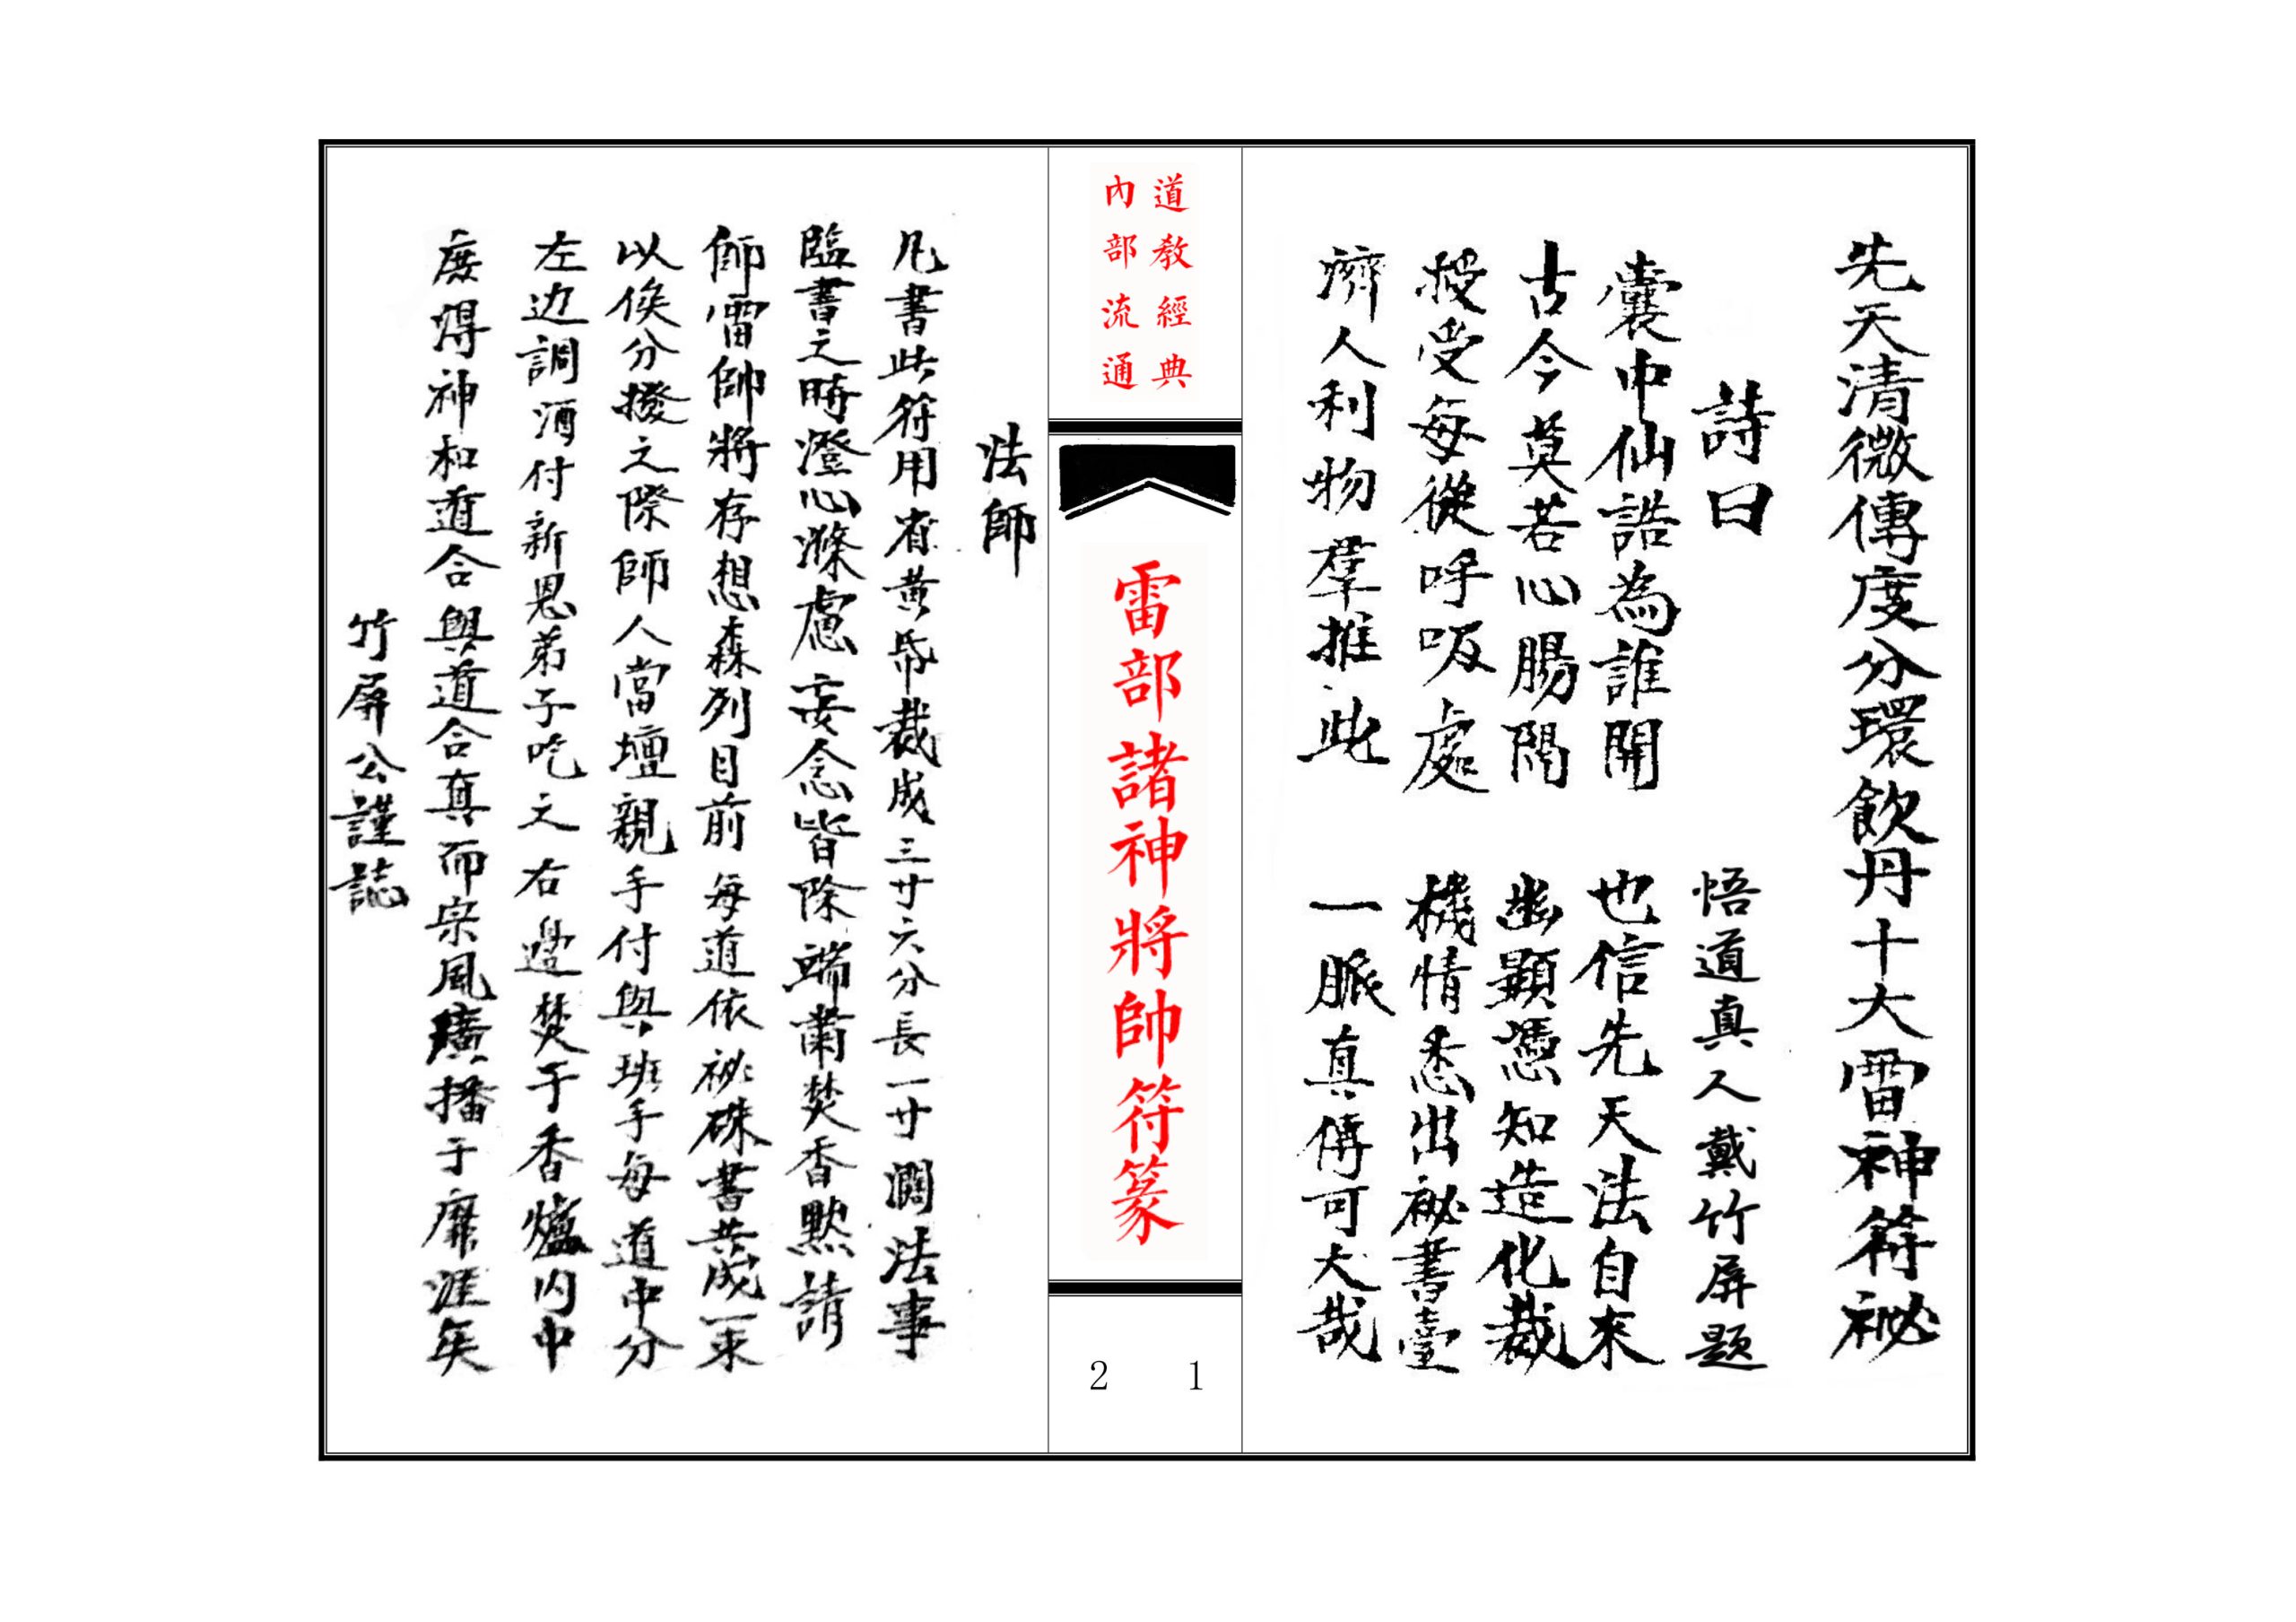 先天清微傳度分環飲丹十大雷神符祕
詩曰 悟道真人戴竹屏題
囊中仙誥為誰開 也信先天法自來
古今莫若心腸闊 幽顯憑知造化裁
授受每從呼吸處 機情悉出祕書臺
濟人利物羣推此 一脈真傳可大哉
道教經典
內部流通
雷部諸神將帥符篆
1
2
法師
凡書此符用有黃帋裁成三寸六分長一寸濶法事
臨書之時澄心滌慮妄念皆除端肅焚香默請
師雷帥將存想森列目前每道依祕硃書共成一束
以俟分撥之際師人當壇親手付與班手每道中分
左边調酒付新恩弟子吃之右邊焚于香爐内中
庶得神和道合與道合真而宗風廣播于靡涯矣
竹屏公謹誌